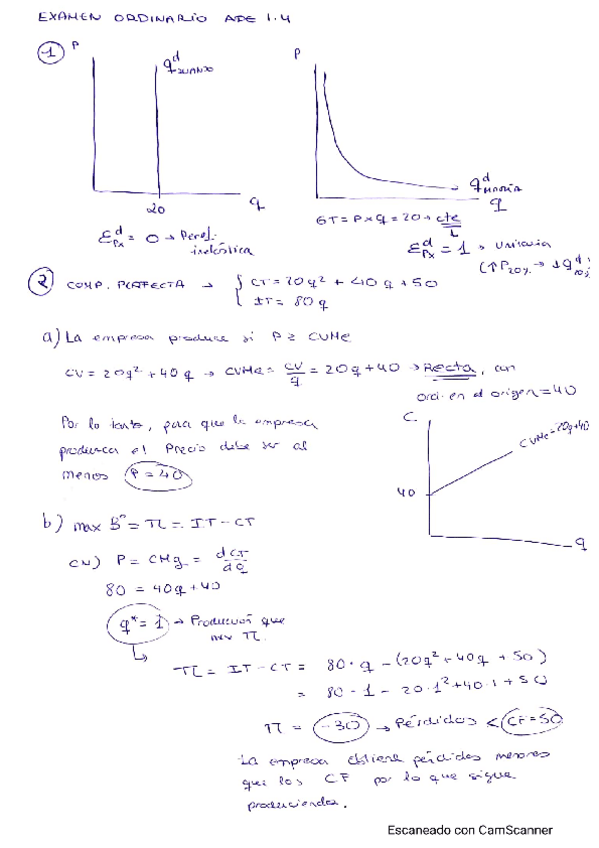 EXAMEN ORDINARIO ADE 1.4
1
P
q^d JUANJO
20
q
ε^d_Px = 0 → Perf. inelástica
P
q^d MARÍA
q
GT = P x q = 20 → cte
ε^d_Px = 1 → Unitaria
(↑P 20% → ↓q^d
2 COMP. PERFECTA → { CT = 20q² + 40q + 50
IT = 80q
a) La empresa produce si P ≥ CVMe
CV = 20q² + 40q → CVMe = CV/q = 20q + 40 → Recta, con
ord. en el origen = 40
Por lo tanto, para que la empresa
produzca el Precio debe ser al
menos P = 40
C
CVMe = 20q+40
40
q
b) max Bº = π = IT - CT
CN) P = CMg = dCT/dq
80 = 40q + 40
q* = 1 → Producción que
max π.
π = IT - CT = 80·q - (20q² + 40q + 50)
= 80·1 - 20·1² + 40·1 + 50
π = -30 → Pérdidas < CF = 50
La empresa obtiene pérdidas menores
que los CF por lo que sigue
produciendo.
Escaneado con CamScanner